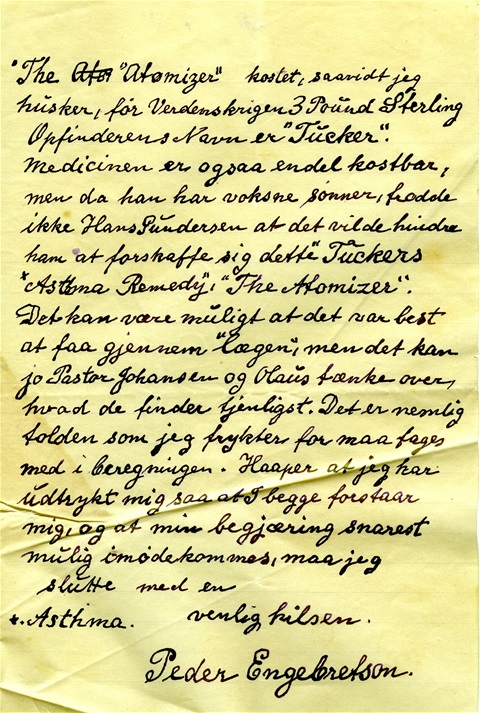 "The A̶t̶o̶ "Atomizer" kostet, saavidt jeg
husker, før Verdenskrigen 3 Pound Sterling
Opfinderens Navn er "Tucker".
Medicinen er ogsaa endel kostbar,
men da han har voksne sønner, trodde
ikke Hans Gundersen at det vilde hindre
ham at forskaffe sig dette "Tuckers
*Asthma Remedy", "The Atomizer".
Det kan være muligt at det var best
at faa gjennem "lægen", men det kan
jo Pastor Johansen og Olaus tænke over,
hvad de finder tjenligst. Det er nemlig
tolden som jeg frykter for maa tages
med i beregningen. Haaper at jeg har
udtrykt mig saa at I begge forstaar
mig, og at min begjæring snarest
mulig imødekommes, maa jeg
slutte med en
*. Asthma. venlig hilsen.
Peder Engebretson.